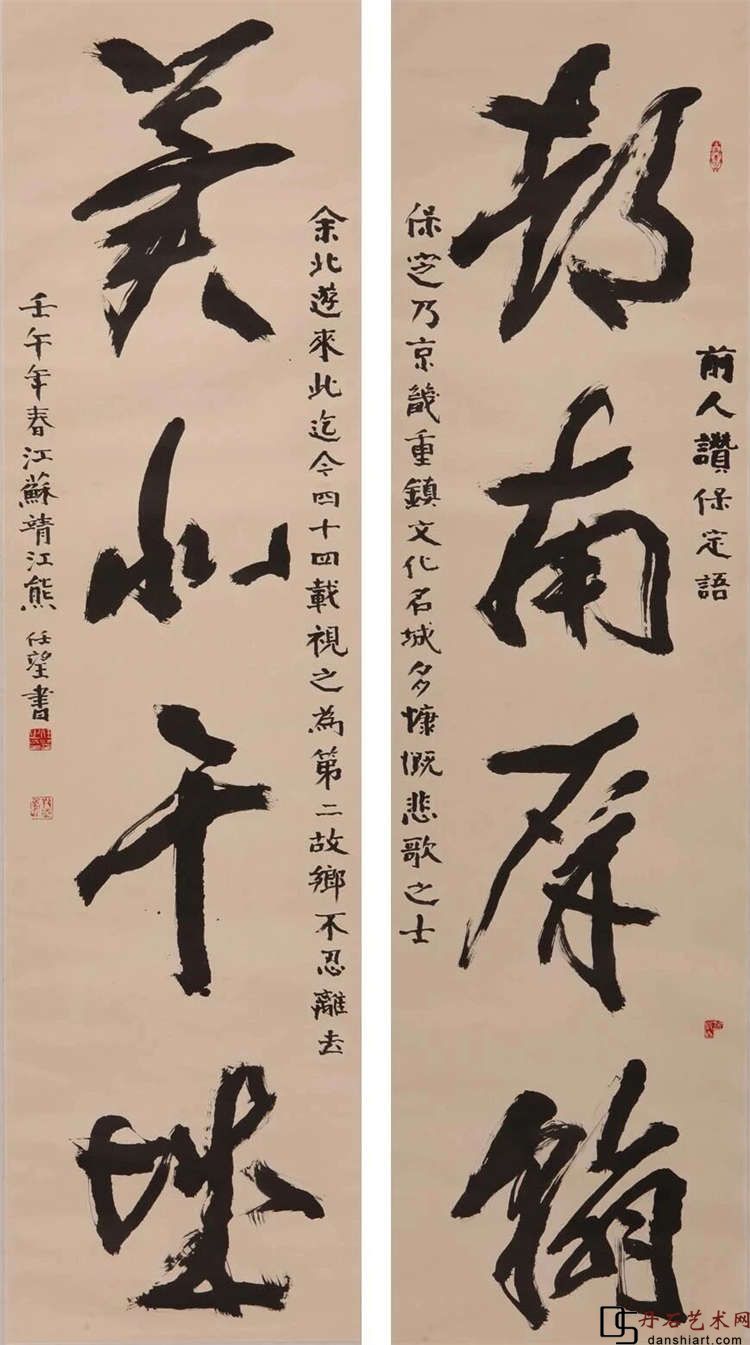 前人讚保定語
都南屏翰
保定乃京畿重鎮文化名城多慷慨悲歌之士
余北遊來此迄今四十四載視之為第二故鄉不忍離去
冀北干城
壬午年春江蘇靖江熊任望書
丹石艺术网
danshiart.com